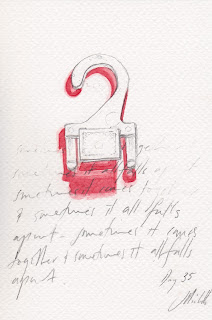 it all falls apart
sometimes it comes toget
& sometimes it all falls
apart. sometimes it comes
together & sometimes it all falls
apart.
Day 35